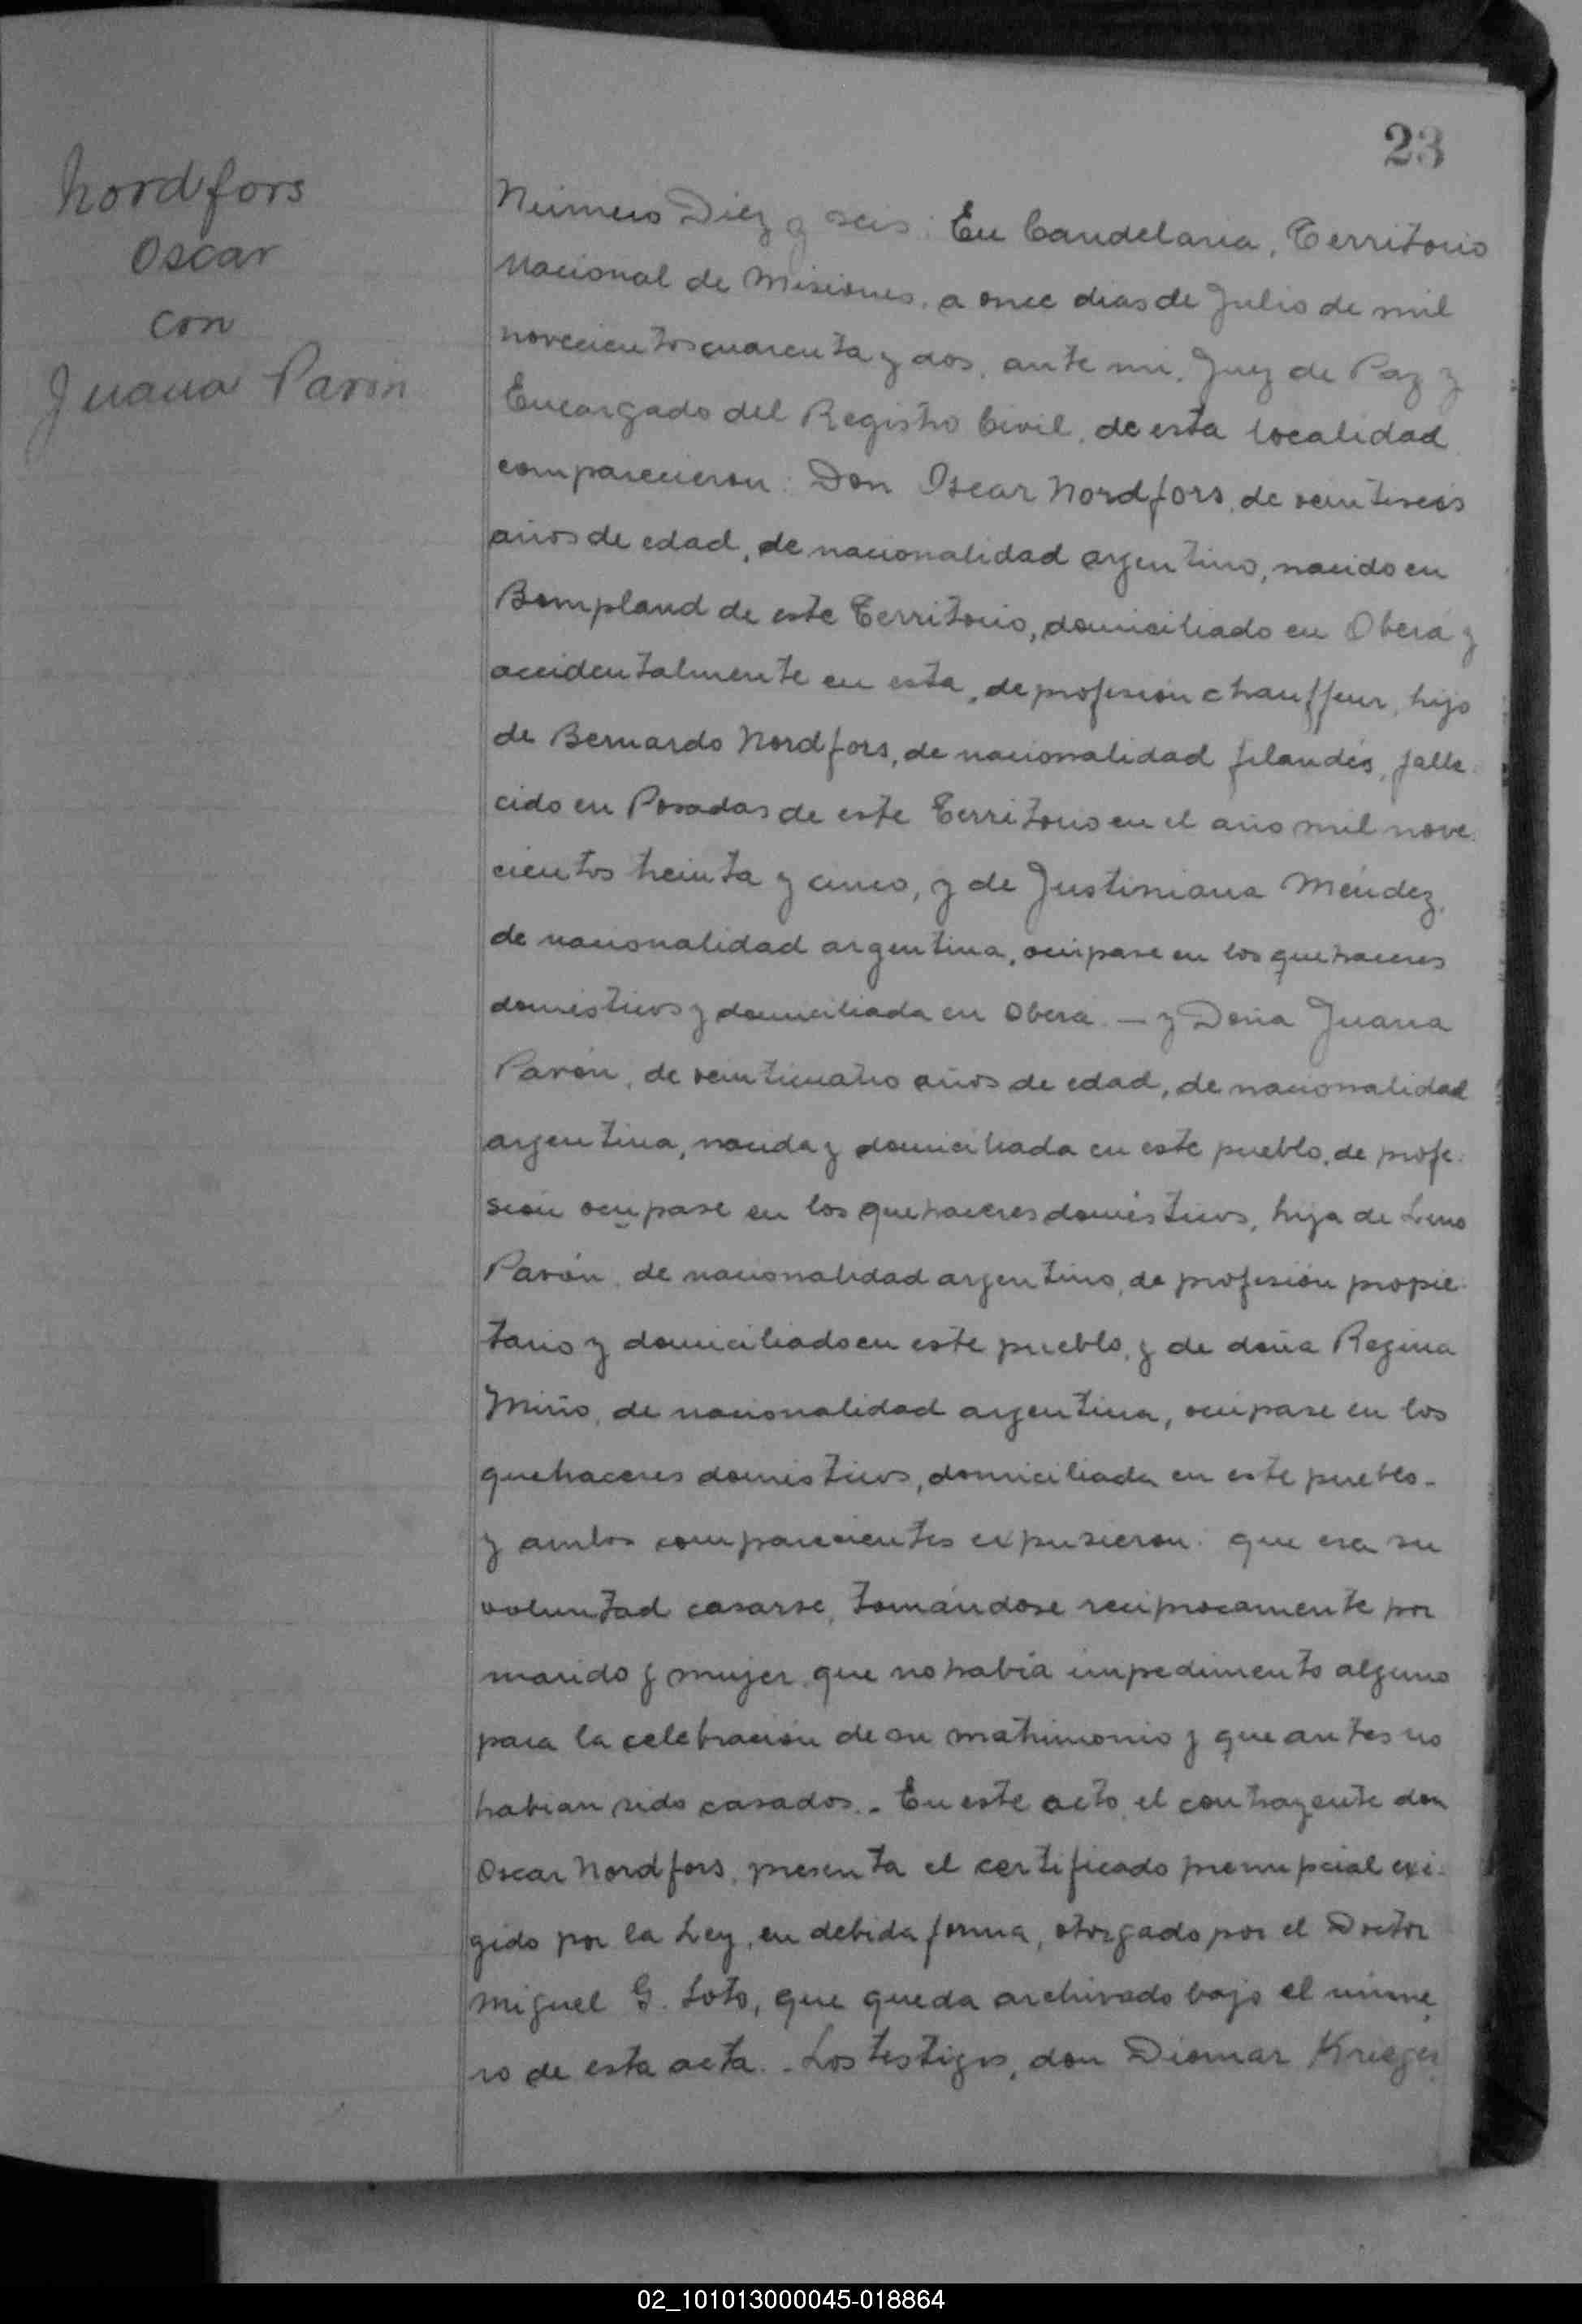 23
Nordfors
Oscar
con
Juana Pavón
Número Diez y seis: En Candelaria, Territorio
Nacional de Misiones, a once dias de Julio de mil
novecientos cuarenta y dos, ante mi, Juez de Paz y
Encargado del Registro Civil, de esta localidad
comparecieron: Don Oscar Nordfors, de veintiseis
años de edad, de nacionalidad argentino, nacido en
Bompland de este Territorio, domiciliado en Oberá y
accidentalmente en esta, de profesión chauffeur, hijo
de Bernardo Nordfors, de nacionalidad filandés, falle-
cido en Posadas de este Territorio en el año mil nove-
cientos treinta y cinco, y de Justiniana Méndez,
de nacionalidad argentina, ocúpase en los quehaceres
domésticos y domiciliada en Oberá. — y Doña Juana
Pavón, de veinticuatro años de edad, de nacionalidad
argentina, nacida y domiciliada en este pueblo, de profe-
sión ocupase en los quehaceres domésticos, hija de Lino
Pavón, de nacionalidad argentino, de profesión propie-
tario y domiciliado en este pueblo, y de doña Regina
Miño, de nacionalidad argentina, ocúpase en los
quehaceres domésticos, domiciliada en este pueblo.-
y ambos comparecientes expusieron: que era su
voluntad casarse, tomándose reciprocamente por
marido y mujer, que no había impedimento alguno
para la celebración de su matrimonio y que antes no
habian sido casados.- En este acto, el contrayente don
Oscar Nordfors, presenta el certificado prenupcial exi-
gido por la Ley, en debida forma, otorgado por el Doctor
Miguel G. Soto, que queda archivado bajo el núme-
ro de esta acta.- Los testigos, don Diomar Krieger,
02_101013000045-018864